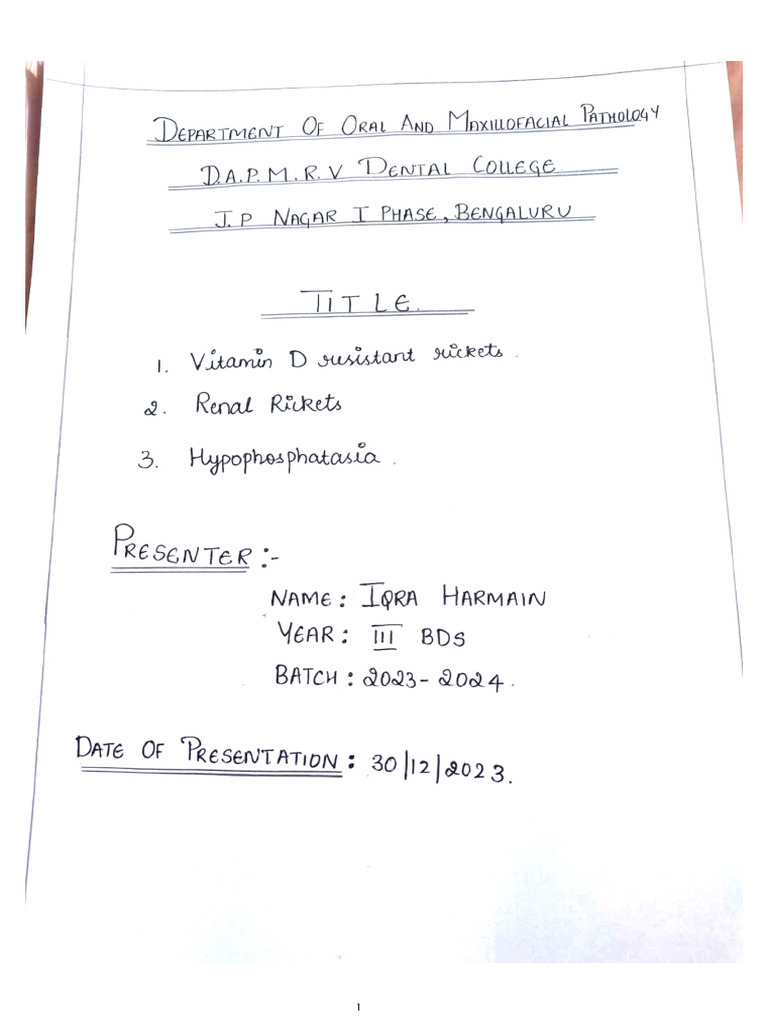 DEPARTMENT OF ORAL AND MAXILLOFACIAL PATHOLOGY
D.A.P.M.R.V DENTAL COLLEGE.
J.P NAGAR I PHASE, BENGALURU
TITLE.
1. Vitamin D resistant rickets.
2. Renal Rickets
3. Hypophosphatasia.
PRESENTER :-
NAME: IQRA HARMAIN
YEAR: III BDS
BATCH: 2023-2024.
DATE OF PRESENTATION: 30/12/2023.
1